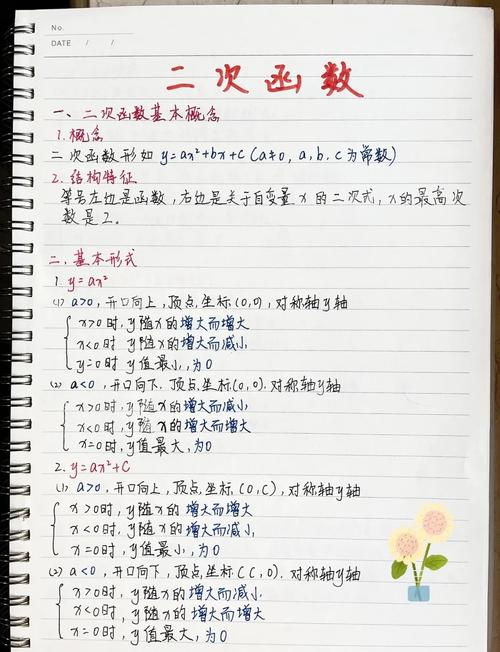 No.
DATE / /
二次函数
一、二次函数基本概念
1.概念
二次函数形如 y=ax²+bx+c (a≠0, a、b、c为常数)
2.结构特征
等号左边是函数,右边是关于自变量x的二次式,x的最高次
数是2。
二、基本形式
1. y=ax²
(1) a>0,开口向上,顶点坐标(0,0),对称轴y轴
x>0时,y随x的增大而增大
x<0时 y随x的增大而减小
y=0时 y值最小,为0
(2) a<0,开口向下.顶点坐标(0,0).对称轴y轴
x>0时,y随x的增大而减小
x<0时,y随x的增大而增大
x=0时,y值最大,为0
2. y=ax²+C
(1) a>0,开口向上,顶点坐标(0,C),对称轴y轴
x>0时,y随x的增大而增大
x<0时,y随x的增大而减小
x=0时,y值最小,为0
(2) a<0,开口向下,顶点坐标(C,0).对称轴y轴
x>0时,y随x的增大而减小
x<0时,y随x的增大而增大
x=0时,y值最大,为0